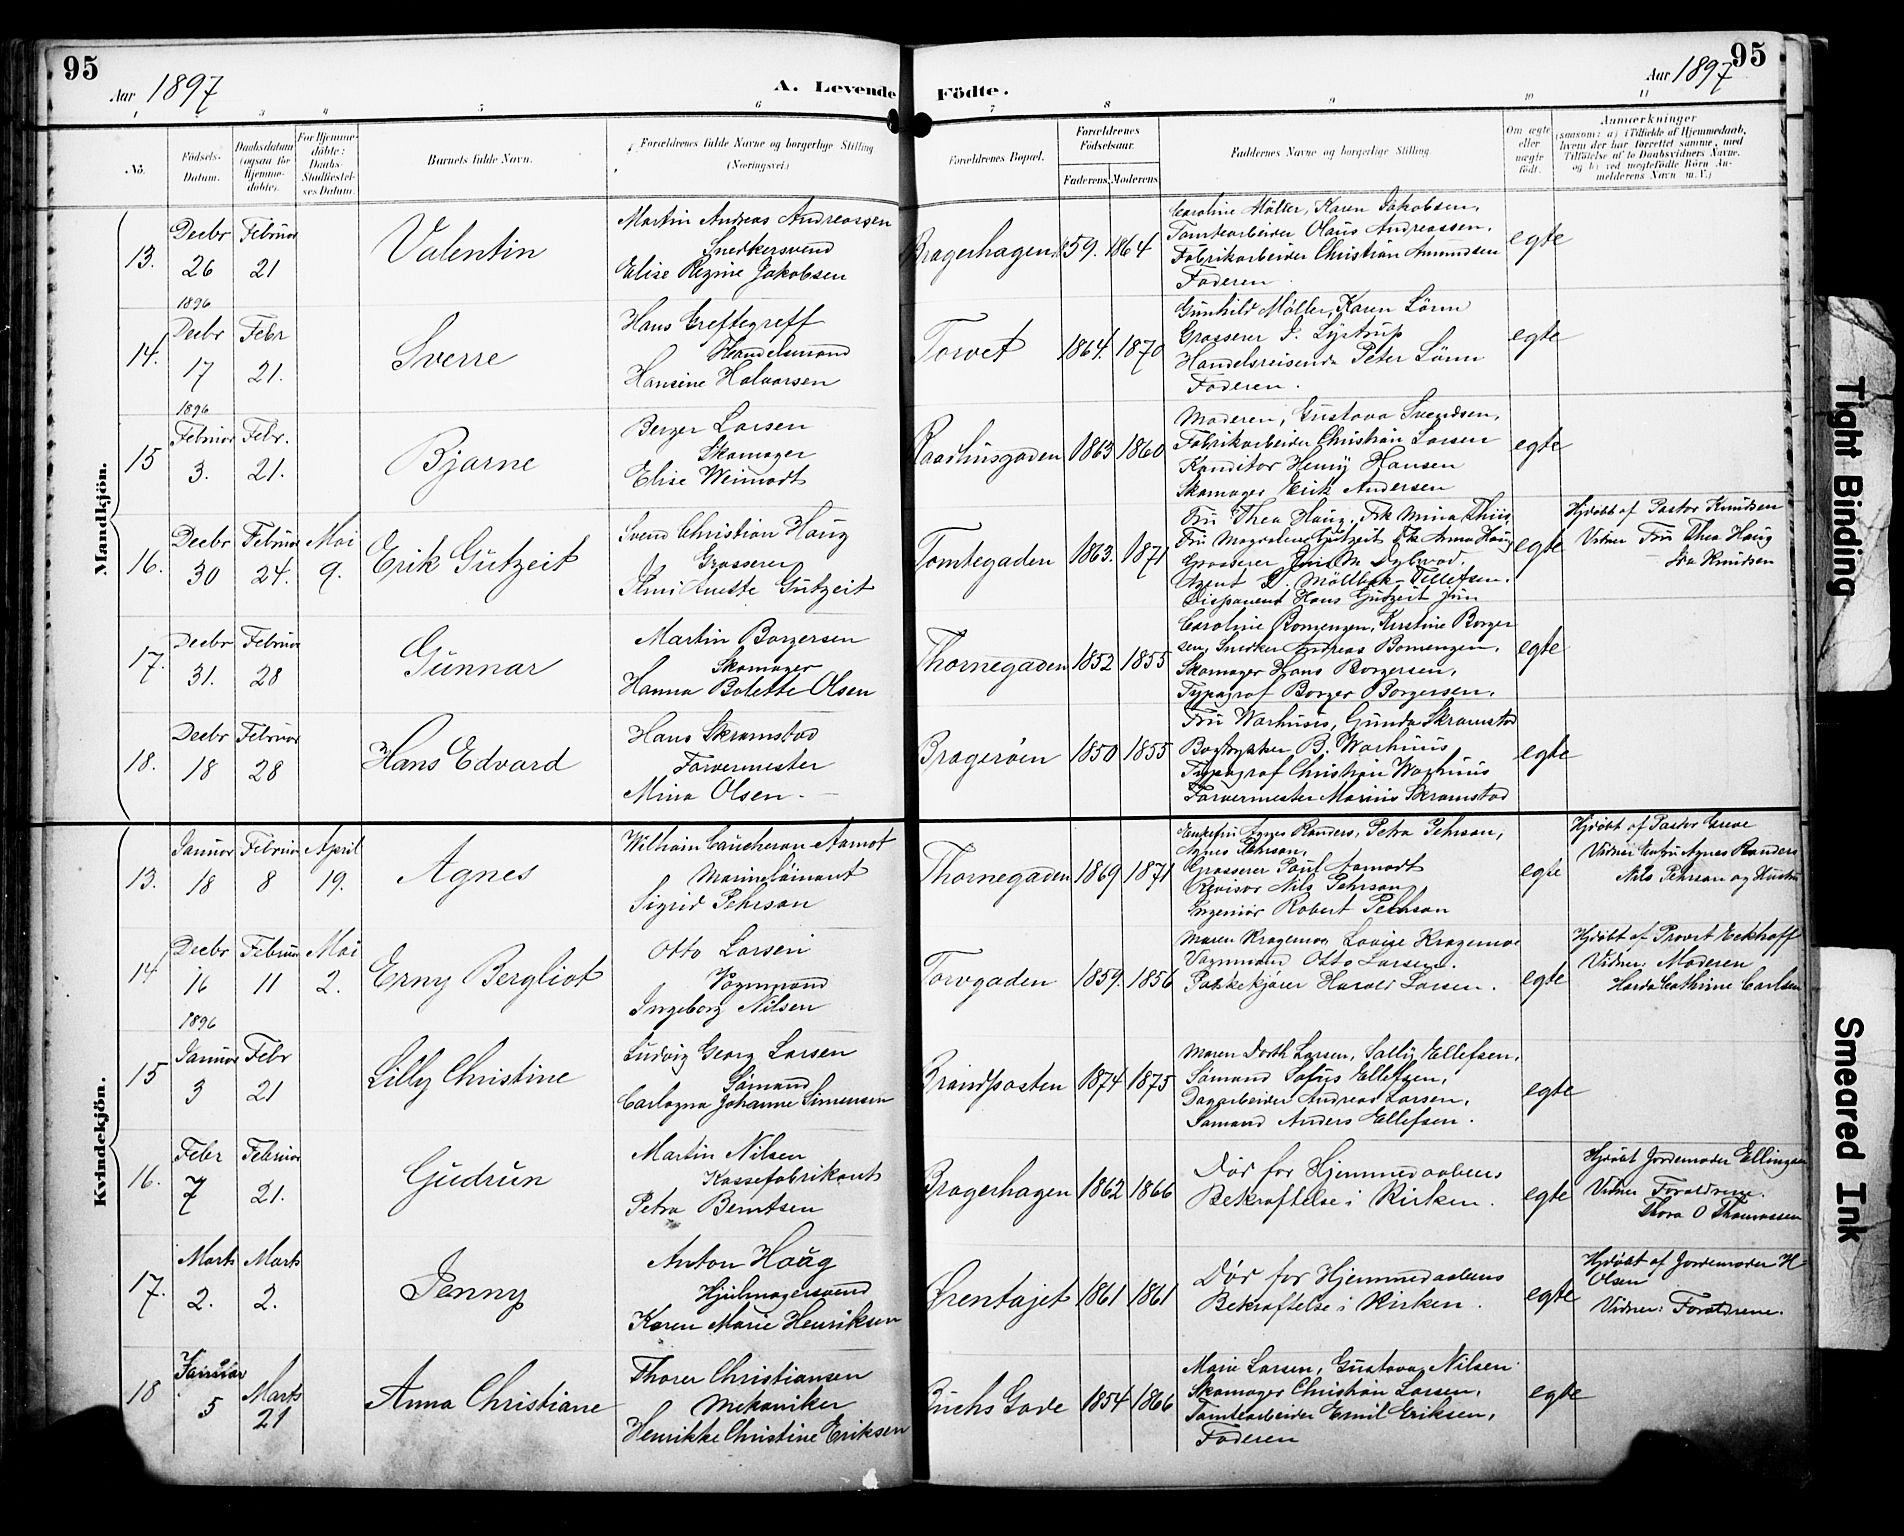 95
Aar 1897
A. Levende
Födte.
Aar 1897
95
1 2 3 4 5 6 7 8 9 10 11
No.
Födsels-
Datum.
Daabsdatum
(ogsaa for
Hjemme-
döbte).
For Hjemme-
döbte:
Daabs-
Stadfæstel-
ses Datum.
Barnets fulde Navn.
Forældrenes fulde Navne og borgerlige Stilling
(Næringsvei.)
Forældrenes Bopæl.
Forældrenes
Födselsaar.
Faderens. Moderens.
Faddernes Navne og borgerlige Stilling.
Om ægte
eller
uægte
födt.
Anmærkninger
(saasom: a) i Tilfælde af Hjemmedaab,
hvem der har forrettet samme, med
Tilföielse af to Daabsvidners Navne,
og b) ved uægtefödte Börn An-
melderens Navn m. V.)
Mandkjön.
13.
Decbr
26
1896
Februar
21
Valentin
Martin Andreas Andreassen
Snedkersvend
Elise Regine Jakobsen
Bragerhagen
1859. 1864
Caroline Möller, Karen Jakobsen,
Tomtearbeider Olaus Andreassen,
Fabrikarbeider Christian Amundsen
Faderen.
egte
14.
Decbr
17
1896
Febr
21.
Sverre
Hans Greftegreff
Handelsmand
Hansine Halvorsen
Torvet
1864. 1870
Gunhild Möller, Karen Lörm
Grosserer J. Lystrup
Handelsreisende Peter Lörm
Faderen.
egte
15
Februar
3.
Febr.
21.
Bjarne
Berger Larsen
Skomager
Elise Weimodt
Raadhusgaden
1863 1860
Moderen, Gustava Svendsen,
Fabrikarbeider Christian Larsen
Konditor Henry Hansen
Skomager Erik Andersen
egte
16.
Decbr
30
Februar
24.
Mai
9.
Erik Gutzeit
Svend Christian Haug
Grosserer
Anette Gutzeit
Tomtegaden
1863. 1871
Fru Thea Haug, Frk Mina Thiis,
Fru Magdalene Gutzeit, Frk Anna Haug
Grosserer Jens M Dybwad.
Agent L. Möllbck-Tellefsen.
Disponent Hans Gutzeit jun
egte
Hjdöbt af Pastor Knudsen
Vidner Fru Thea Haug
Knudsen
17.
Decbr
31.
Februar
28
Gunnar
Martin Borgersen
Skomager
Hanna Bolette Olsen
Thornegaden
1852 1855
Caroline Bomengen, Kirstine Borger
sen, Snedker Andreas Bomengen,
Skomager Hans Borgersen,
Typograf Borger Borgersen.
egte
18.
Decbr
18
Februar
28
Hans Edvard
Hans Skramstad
Farvermester
Mina Olsen.
Bragerøen
1850 1855
Fru Warhuus, Gunda Skramstad
Bogtrykker B. Warhuus
Typograf Christian Warhuus
Farvermester Marius Skramstad
egte
Kvindekjön.
13.
Januar
18
Februar
8
April
19.
Agnes
Wilhelm Caucheron Aamot
Marinelöitnant
Sigrid Pehrson
Thornegaden
1869 1871
Enkefru Agnes Randers, Petra Pehrson,
Agnes Pehrson,
Grosserer Paul Aamodt
Revisor Nils Pehrson
Ingeniör Robert Pehrson
egte
Hjdöbt af Pastor Greve
Vidner Enkfru Agnes Randers
Nils Pehrson og Hustru
14
Decbr
16
1896
Februar
11
Mai
2.
Erny Bergliot
Otto Larsen
Vognmand
Ingeborg Nilsen
Torvgaden
1859. 1856
Maren Kragemoe Lovise Kragemoe
Vognmand Otto Larsen.
Pakkekjører Harald Larsen.
egte
Hjdöbt af Provst Eckhoff
Vidner: Moderen
Cathrine Carlsen
15
Januar
3
Febr
21
Lilly Christine
Ludvig Georg Larsen
Sömand
Carlogna Johanne Simensen
Brandposten
1874 1875
Maren Dorth Larsen, Sally Ellefsen,
Sömand Sofus Ellefsen,
Dagarbeider Andreas Larsen,
Sömand Anders Ellefsen.
egte
16.
Febr
7
Februar
21.
Gudrun
Martin Nilsen
Kassefabrikant
Petra Berntsen
Bragerhagen
1862 1866
Död før Hjemmedaabens
Bekræftelse i Kirken.
egte
Hjdöbt Jordemoder Ellingsen
Vidner Forældrene.
Thora O Thomassen
17.
Marts
2.
Marts
2.
Jenny
Anton Haug
Hjulmagersvend
Karen Marie Henriksen
Ørentajet
1861 1861
Död før Hjemmedaabens
Bekræftelse i Kirken.
egte
Hjdöbt af Jordemoder H
Olsen
Vidner: Forældrene.
18
Januar
5
Marts
21
Anna Christiane
Thorer Christiansen
Mekaniker
Henrikke Christine Eriksen
Buchs Gade
1854 1866
Marie Larsen, Gustava Nilsen
Skomager Christian Larsen,
Tomtearbeider Emil Eriksen,
Faderen
egte
Tight Binding
Smeared Ink